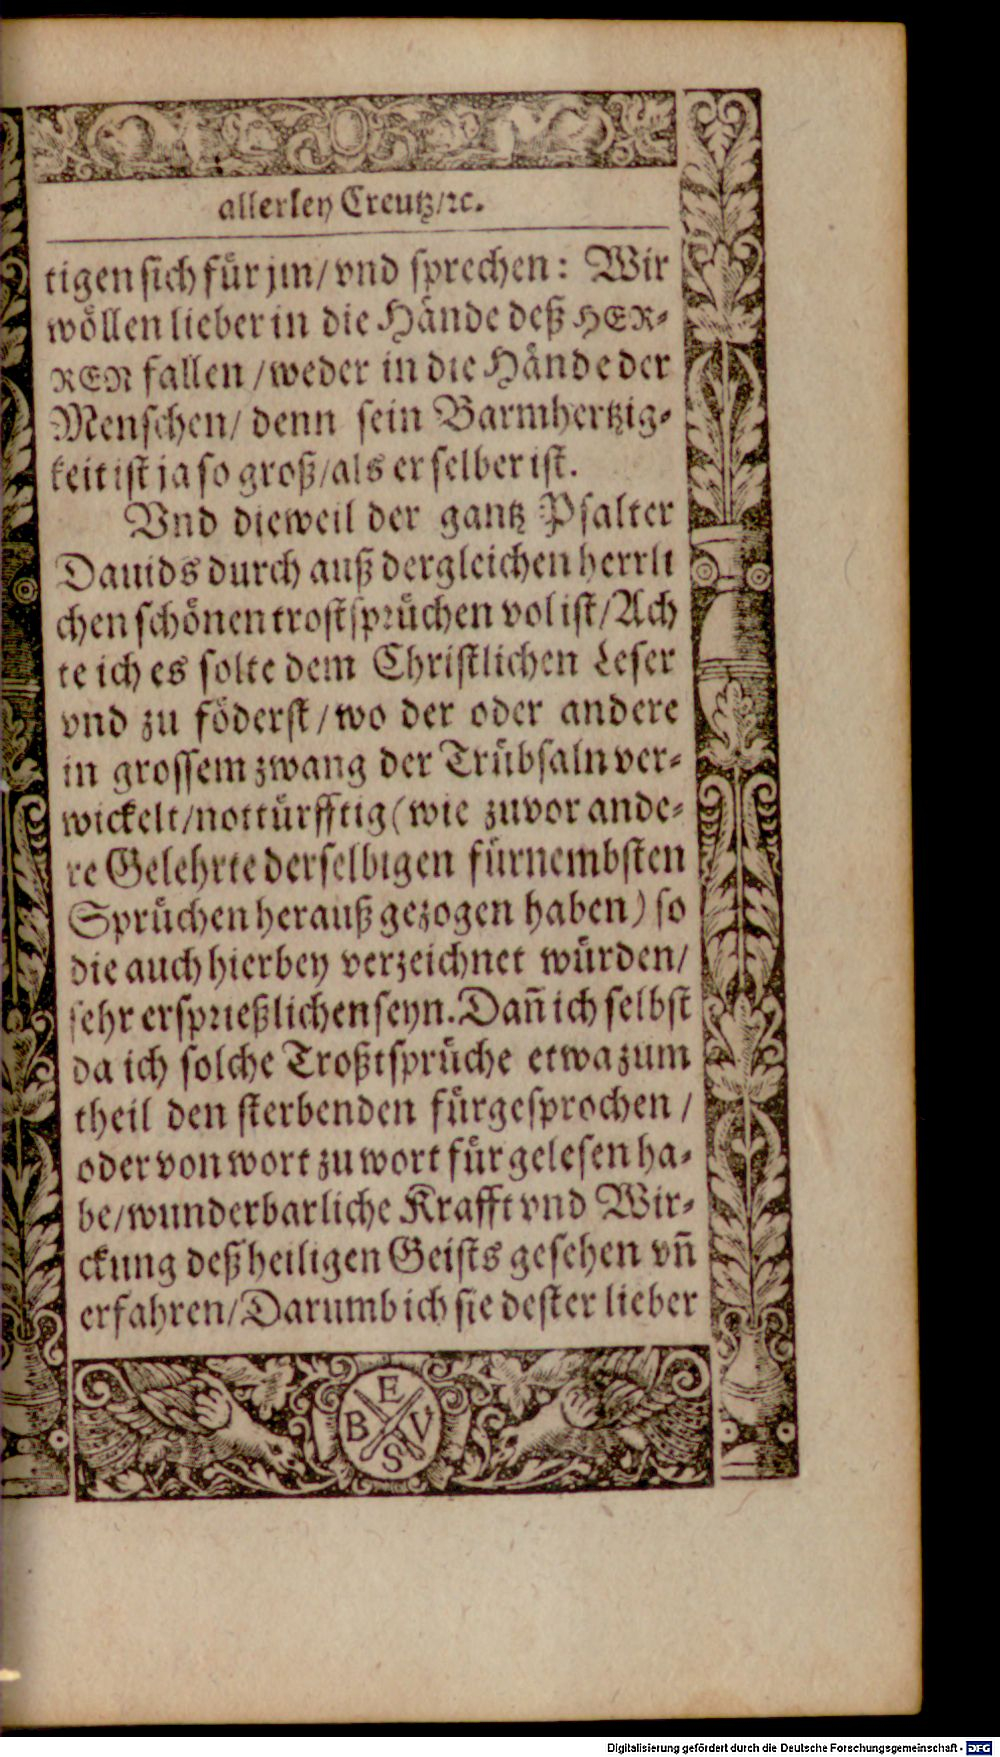 allerley Creutz/ꝛc.
tigen sich für jm/ vnd sprechen: Wir
wöllen lieber in die Hände deß HER-
REN fallen /weder in die Hände der
Menschen/ denn sein Barmhertzig-
keit ist ja so groß/als er selber ist.
Vnd dieweil der gantz Psalter
Dauids durch auß dergleichen herrli
chen schönen trostsprüchen vol ist/Ach
te ich es solte dem Christlichen Leser
vnd zu föderst/wo der oder andere
in grossem zwang der Trübsaln ver-
wickelt/nottürfftig (wie zuvor ande-
re Gelehrte derselbigen fürnembsten
Sprüchen herauß gezogen haben) so
die auch hierbey verzeichnet würden/
sehr ersprießlichen seyn. Dañ ich selbst
da ich solche Troßtsprüche etwa zum
theil den sterbenden fürgesprochen /
oder von wort zu wort für gelesen ha-
be/wunderbarliche Krafft vnd Wir-
ckung deß heiligen Geists gesehen vñ
erfahren/Darumb ich sie dester lieber
E
B V
S
Digitalisierung gefördert durch die Deutsche Forschungsgemeinschaft - DFG